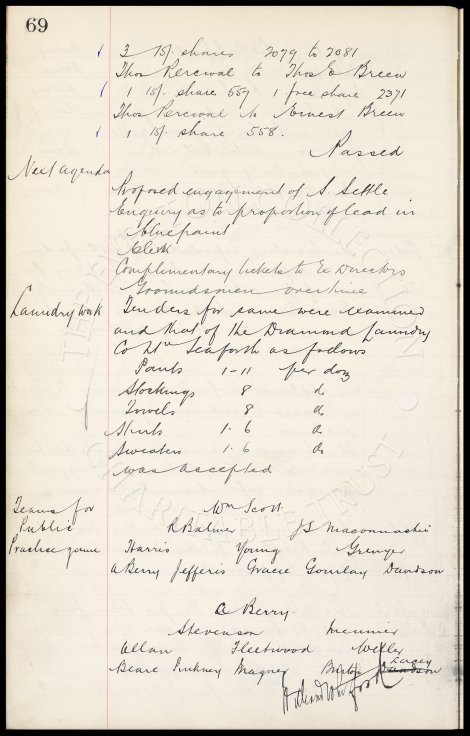 69
3 15/. shares 2079 to 2081
Thos Percival to Thos E Breen
1 15/. share 557 1 free share 2371
Thos Percival to Ernest Breen
1 15/ share 558.
Passed
Next agenda
Proposed engagement of A. Settle
Enquiry as to proportion of lead in
blue paint
Clerk
Complimentary tickets to Ex Directors
Groundsmen overtime
Laundry work
Tenders for same were examined
and that of the Diamond Laundry
Co Ltd Seaforth as follows
Pants 1-11 per doz
Stockings 8 do
Towels 8 do
Shirts 1. 6 do
Sweaters 1. 6 do
was accepted
Teams for
Public
Practice game
Wm Scott
R Balmer J S Maconnachie
Harris Young Grenyer
A Berry Jefferis Gracie Gourlay Davidson
A Berry.
Stevenson Meunier
Allan Fleetwood Weller
Beare Pinkney Magner Burton Davidson Lacey
THE EVERTON COLLECTION
CHARITABLE TRUST